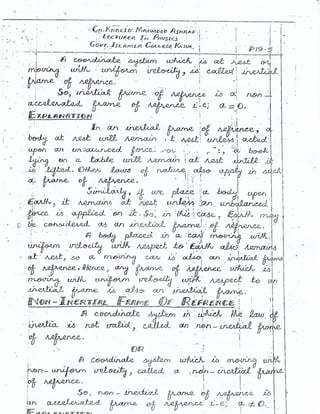 CH. KHALID MAHMOOD ASHRAF
LECTURER IN PHYSICS
GOVT. ISLAMIA COLLEGE KASUR.
P19-5
A coordinate system which is at rest or
moving with uniform velocity, is called inertial
frame of refrence.
So, inertial frame of refrence is a non-
accelerated frame of refrence i-e; a = 0.
EXPLANATION
In an inertial frame of refrence, a
body at rest will remain at rest unless acted
upon an unbalanced force. a book
lying on a table will remain at rest untill it
is lifted. Other laws of nature also apply in such
a frame of refrence.
Similarly, if we place a body upon
Earth, it remains at rest unless an unbalanced
force is applied on it. So, in this case, Earth may
be considered as an inertial frame of refrence.
A body placed in a car moving with
uniform velocity with respect to Earth also remains
at rest, so a moving car is also an inertial frame
of refrence. Hence, any frame of refrence which is
moving with uniform velocity with respect to an
inertial frame is also an inertial frame.
NON-INERTIAL FRAME OF REFRENCE
A coordinate system in which the law of
inertia is not valid, called an non-inertial frame
of refrence.
OR
A coordinate system which is moving with
non-uniform velocity, called a non-inertial frame
of refrence.
So, non-inertial frame of refrence is
an accelerated frame of refrence i-e; a ≠ 0.